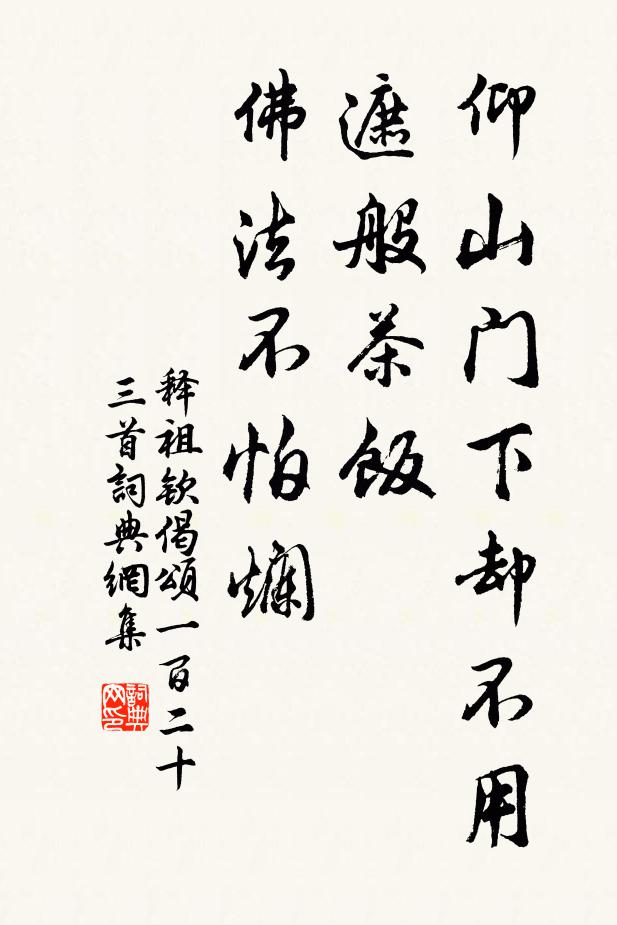 仰山门下却不用
遮般茶飯
佛法不怕爛
释祖钦偈頌一百二十
三首詞典網集
詞典
网印